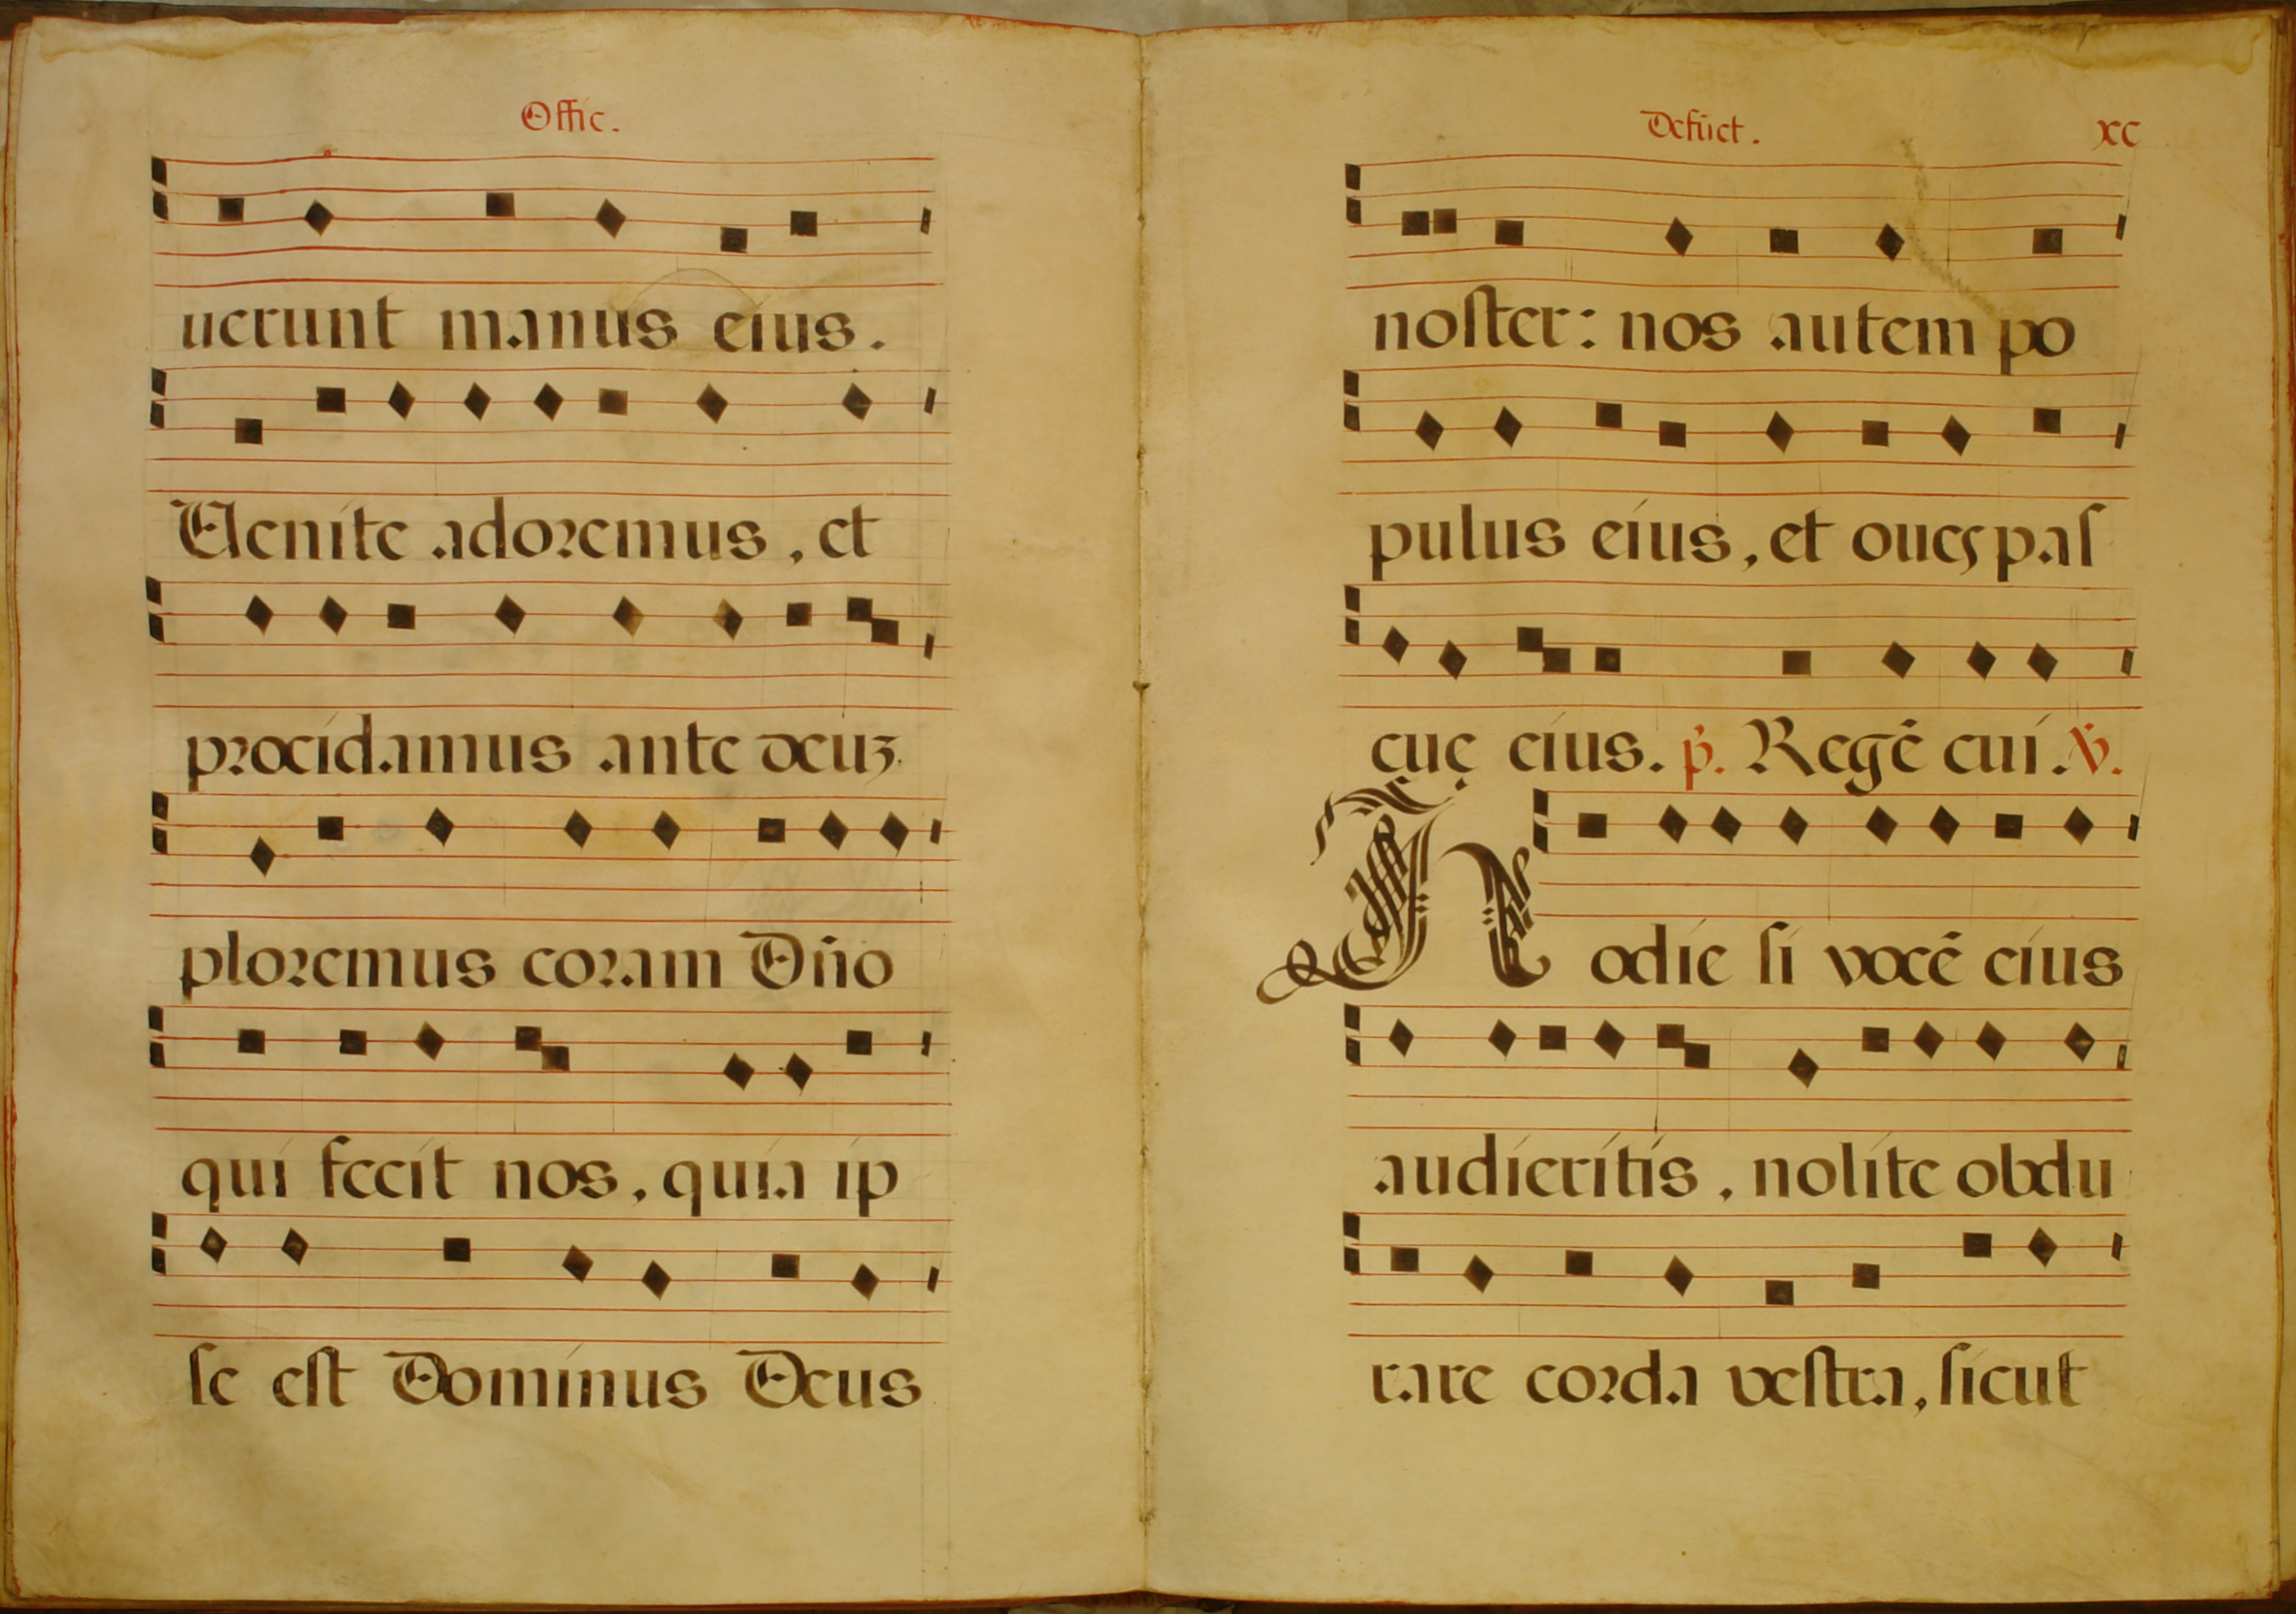 Offic.
uerunt manus eius.
Uenite adoremus, et
procidamus ante deuȝ.
ploremus coram Dño
qui fecit nos, quia ip
ſe eſt Dominus Deus
Defūct. xc
noſter: nos autem po
pulus eius, et oues paſ
cuę eius. p̃. Regē cui. ℣.
Hodie ſi vocē eius
audieritis, nolite obdu
rare corda veſtra, ſicut